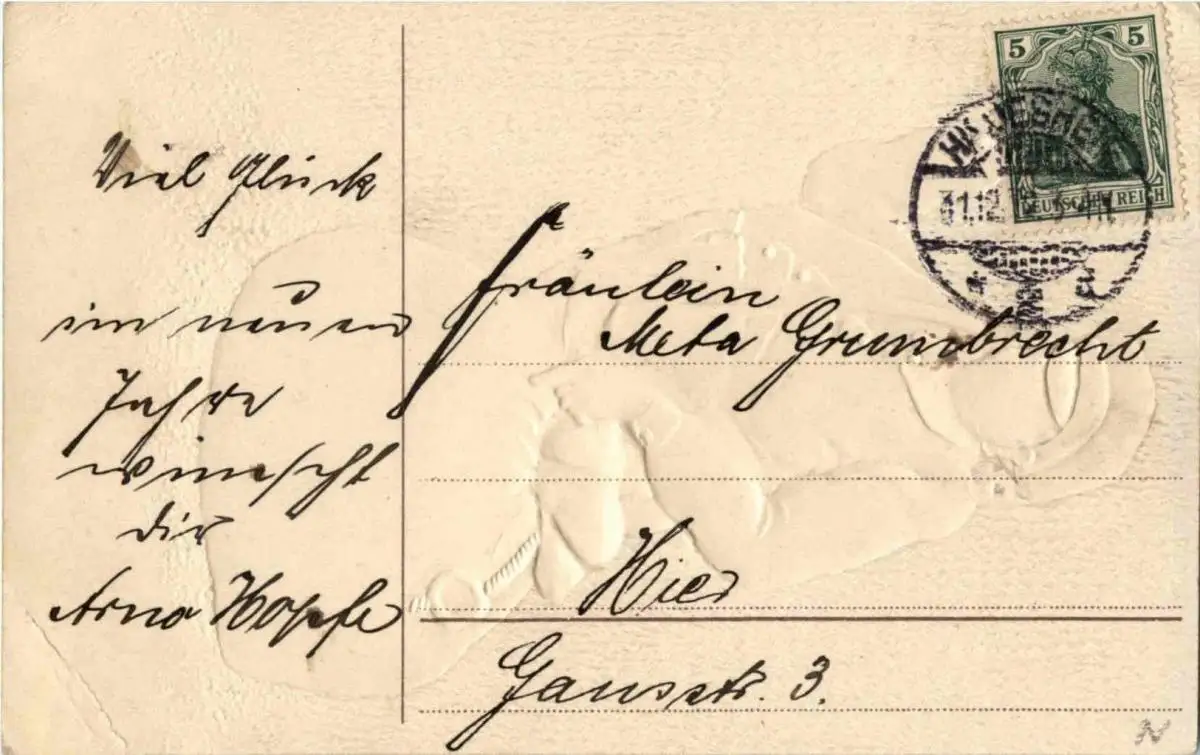 Viel Glück
im neuen
Jahre
wünscht
dir
Arno Hopfe
5 5
DEUTSCHES REICH
31.12.
Fräulein
Meta Grumbrecht
Hier
Gausstr. 3.